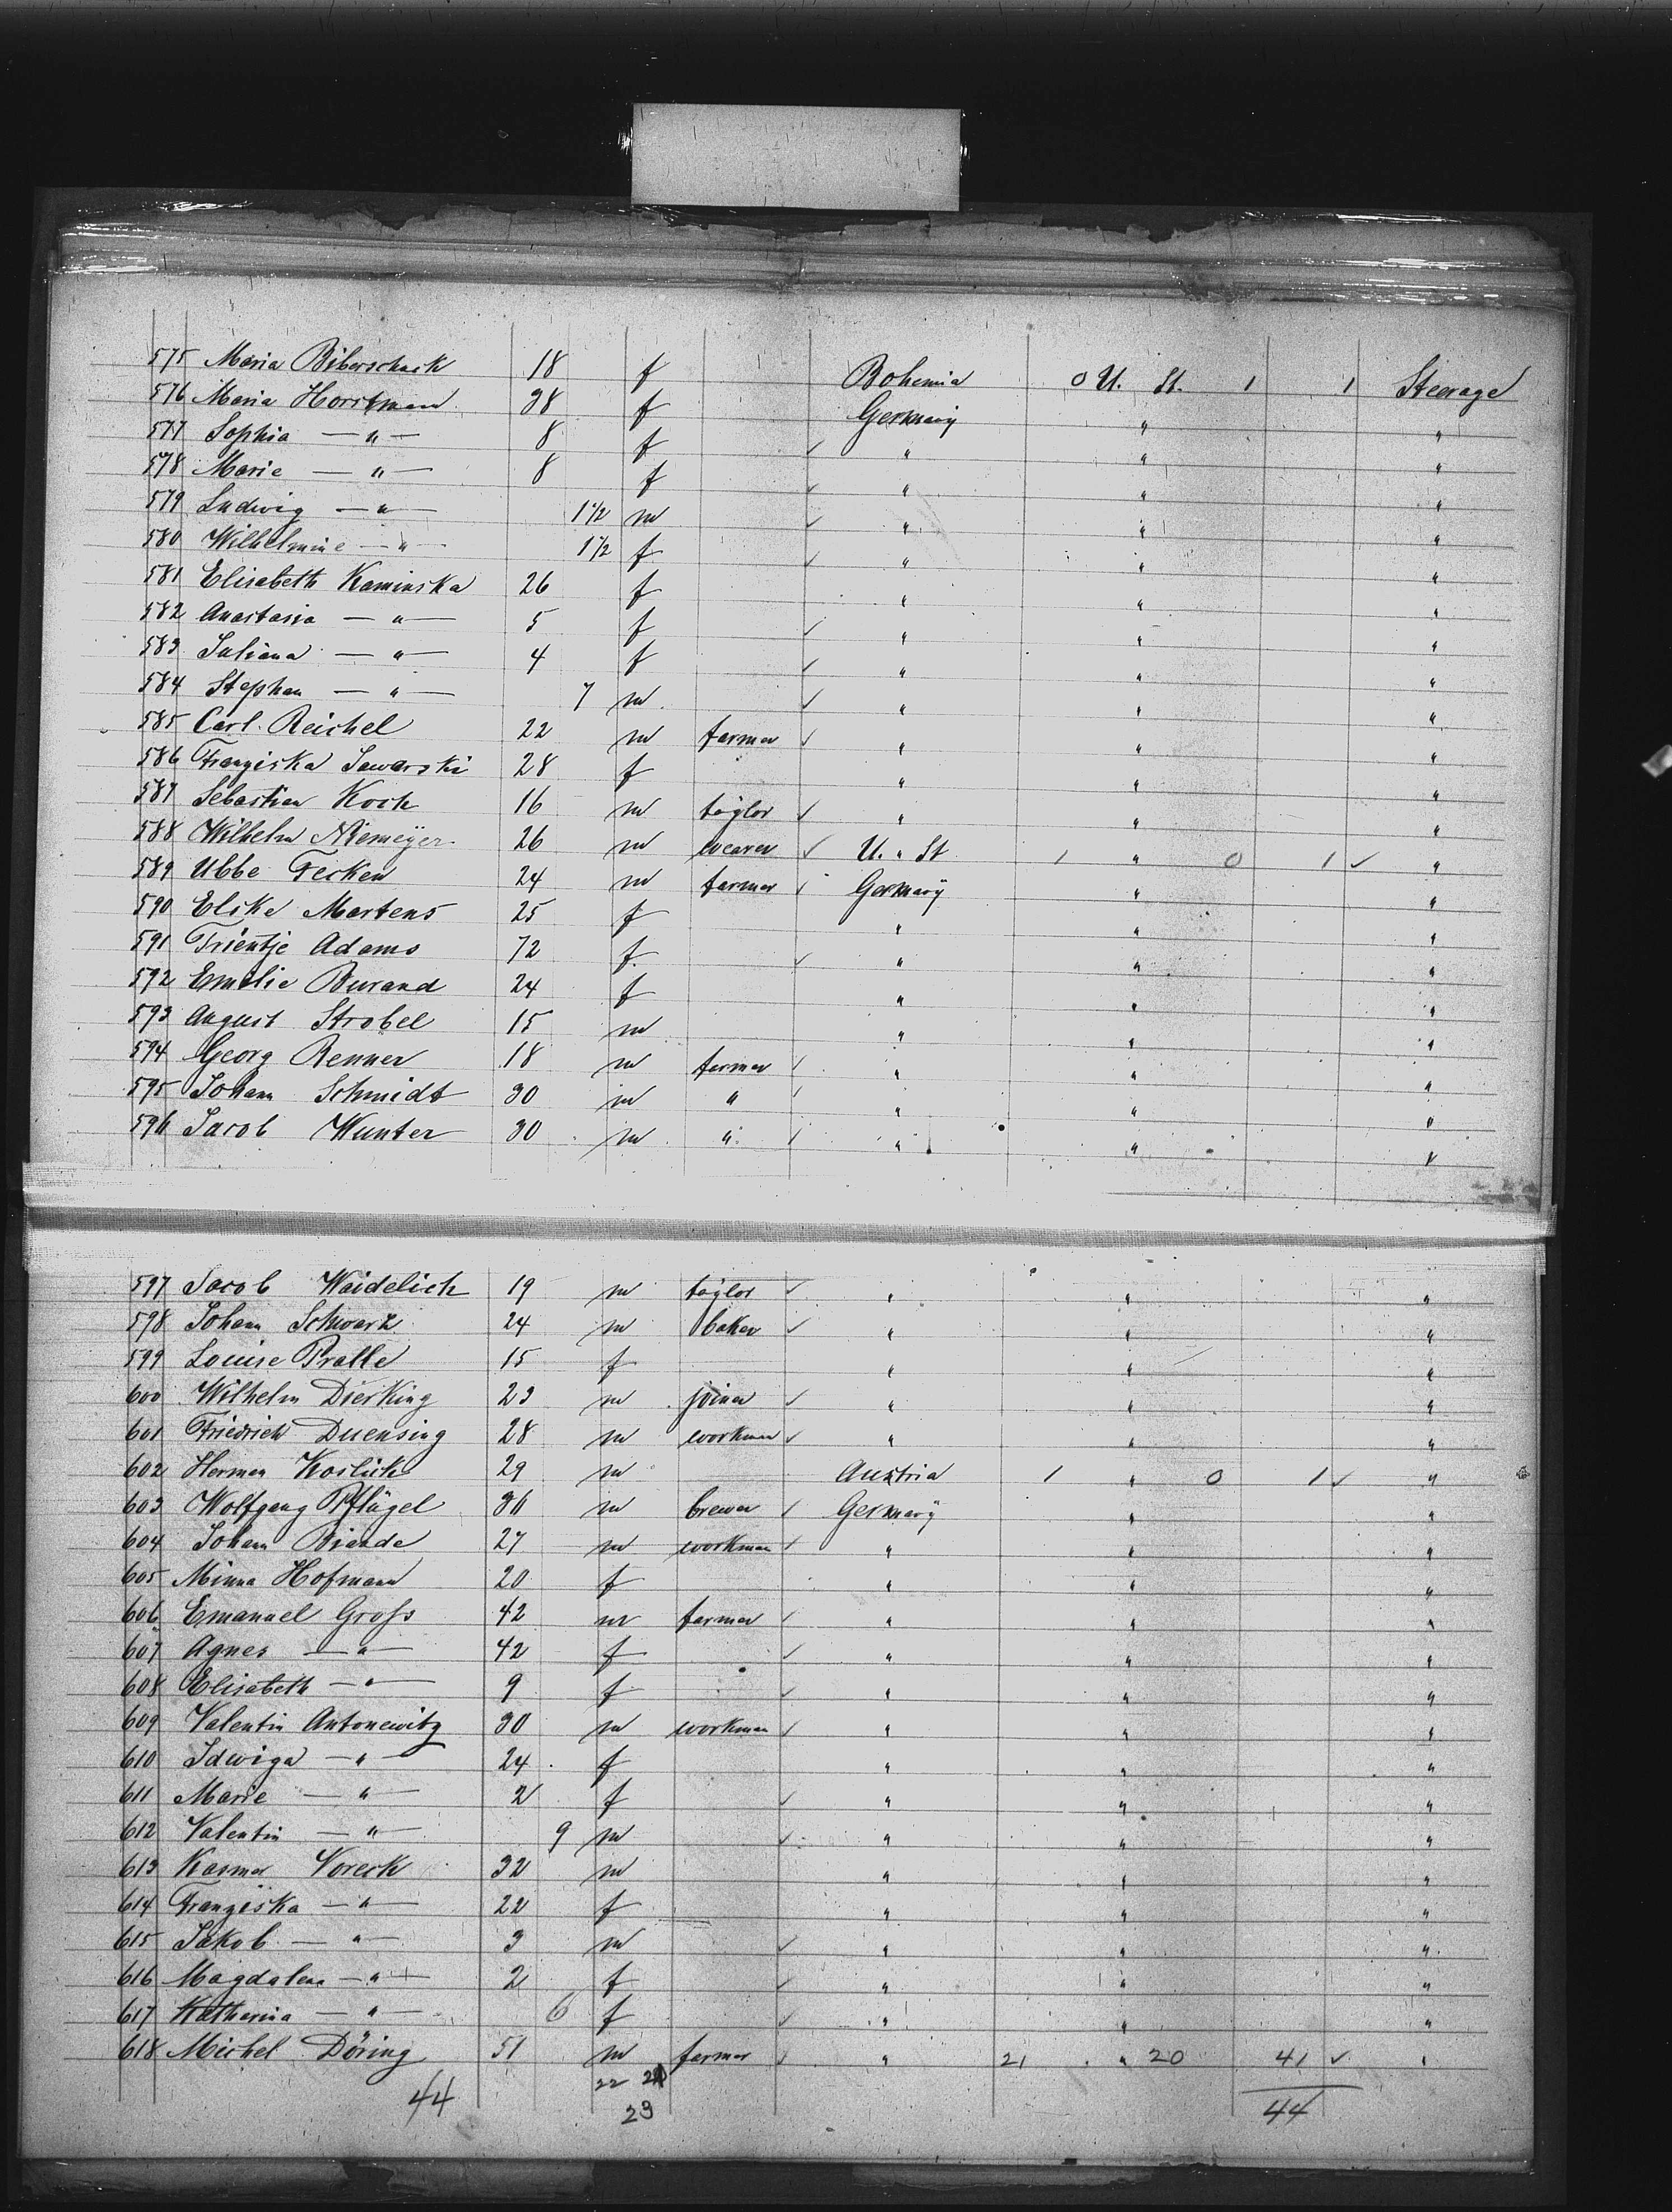 575 Maria Biberschack 18 f Bohemia 0 U. St. 1 1 Steerage
576 Maria Horstmann 38 f Germany " "
577 Sophia —"— 8 f ✓ " " "
578 Marie —"— 8 f ✓ " " "
579 Ludwig —"— 1 1/2 m ✓ " " "
580 Wilhelmine —"— 1 1/2 f ✓ " " "
581 Elisabeth Kaminska 26 f " " "
582 Anastasia —"— 5 f ✓ " " "
583 Juliana —"— 4 f ✓ " " "
584 Stephan —"— 7 m ✓ " " "
585 Carl Reichel 22 m farmer ✓ " " "
586 Franziska Sawarski 28 f " " "
587 Sebastian Koch 16 m taylor ✓ " " "
588 Wilhelm Niemeÿer 26 m weaver ✓ U. " St 1 " 0 1 ✓ "
589 Ubbe Fecken 24 m farmer ✓ Germany " "
590 Elske Martens 25 f " " "
591 Trientje Adams 72 f. ✓ " " "
592 Emilie Burand 24 f " " "
593 August Strobel 15 m " " "
594 Georg Renner 18 m farmer ✓ " " "
595 Johann Schmidt 30 m " ✓ " " "
596 Jacob Wunter 30 m " ✓ " " "
597 Jacob Waidelich 19 m taylor ✓ " " "
598 Johann Schwarz 24 m baker ✓ " " "
599 Louise Pralle 15 f " " "
600 Wilhelm Dierking 23 m joiner ✓ " " "
601 Friedrich Duensing 28 m workman ✓ " " "
602 Herman Koslick 29 m Austria 1 " 0 1 ✓ "
603 Wolfgang Pflügel 36 m brewer ✓ Germany " "
604 Johann 27 m workman ✓ " " "
605 Minna Hofmann 20 f " " "
606 Emanuel Groſs 42 m farmer ✓ " " "
607 Agnes —"— 42 f ✓ " " "
608 Elisabeth —"— 9 f ✓ " " "
609 Valentin Antonewitz 30 m workman ✓ " " "
610 Idwiga —"— 24 f " " "
611 Marie —"— 2 f ✓ " " "
612 Valentin —"— 9 m ✓ " " "
613 Voreck 32 m " " "
614 Franziska —"— 22 f " " "
615 Jakob —"— 3 m ✓ " " "
616 Magdalena —"— 2 f ✓ " " "
617 Katharina —"— 6 f ✓ " " "
618 Michel Döring 51 m farmer ✓ " 21 " 20 41 ✓ "
44 22 23 44